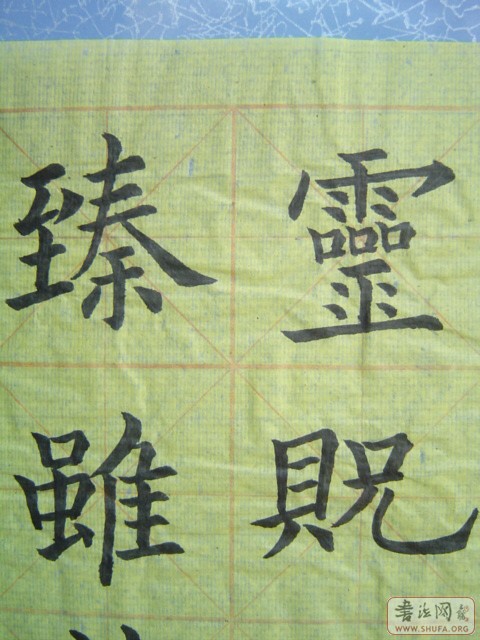 靈貺
臻雖
書法网
WWW.SHUFA.ORG